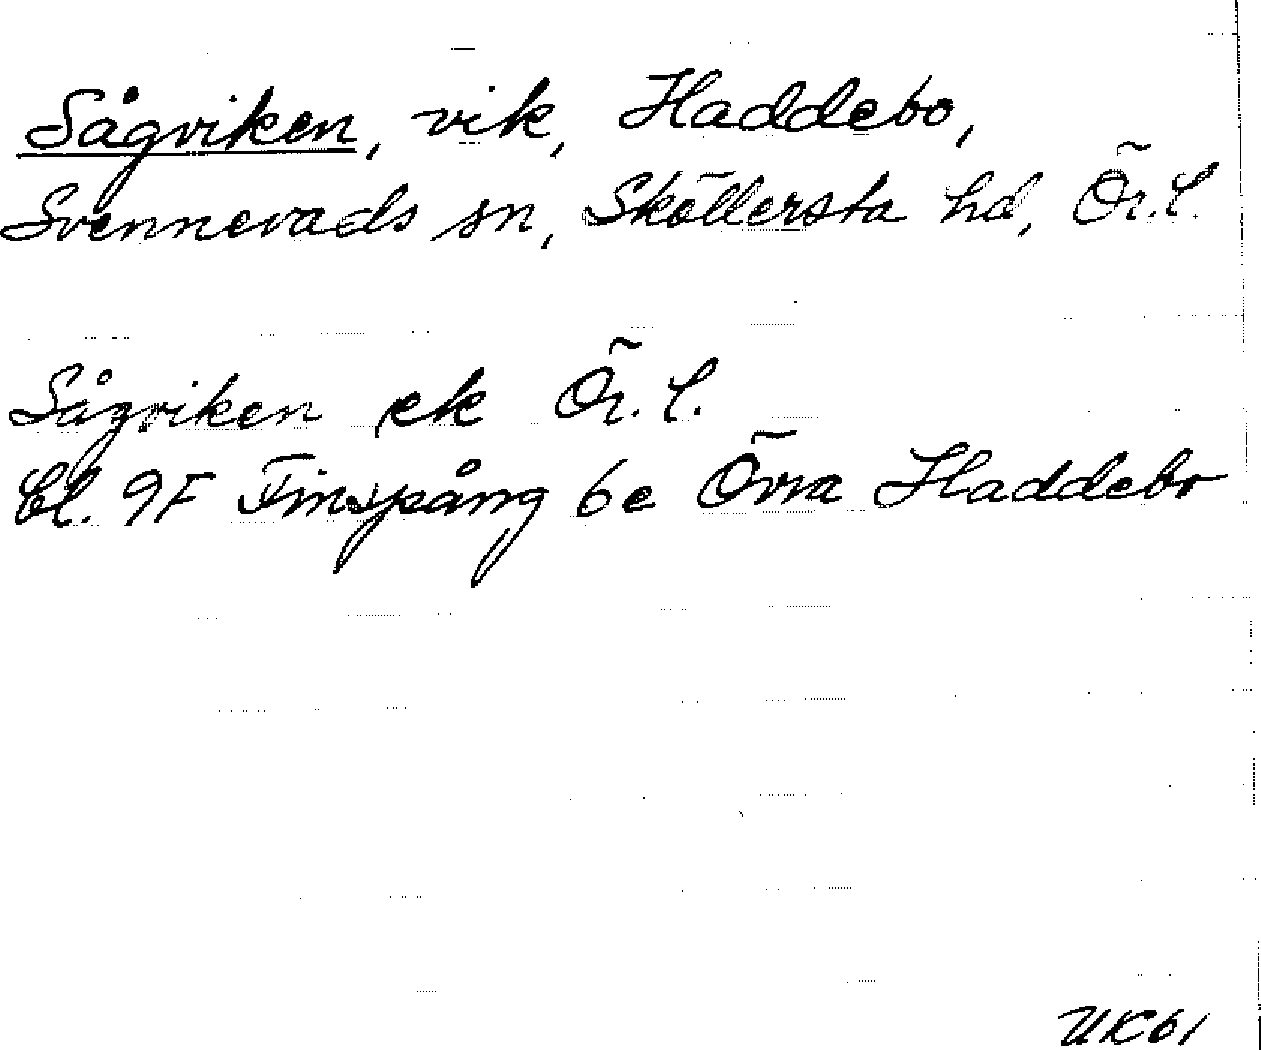 Sågviken, vik, Haddebo,
Svennevads sn, Sköllersta hd, Ör.l.
Sågviken ek Ör. l.
bl. 9F Finspång 6e Övra Haddebo
UK61